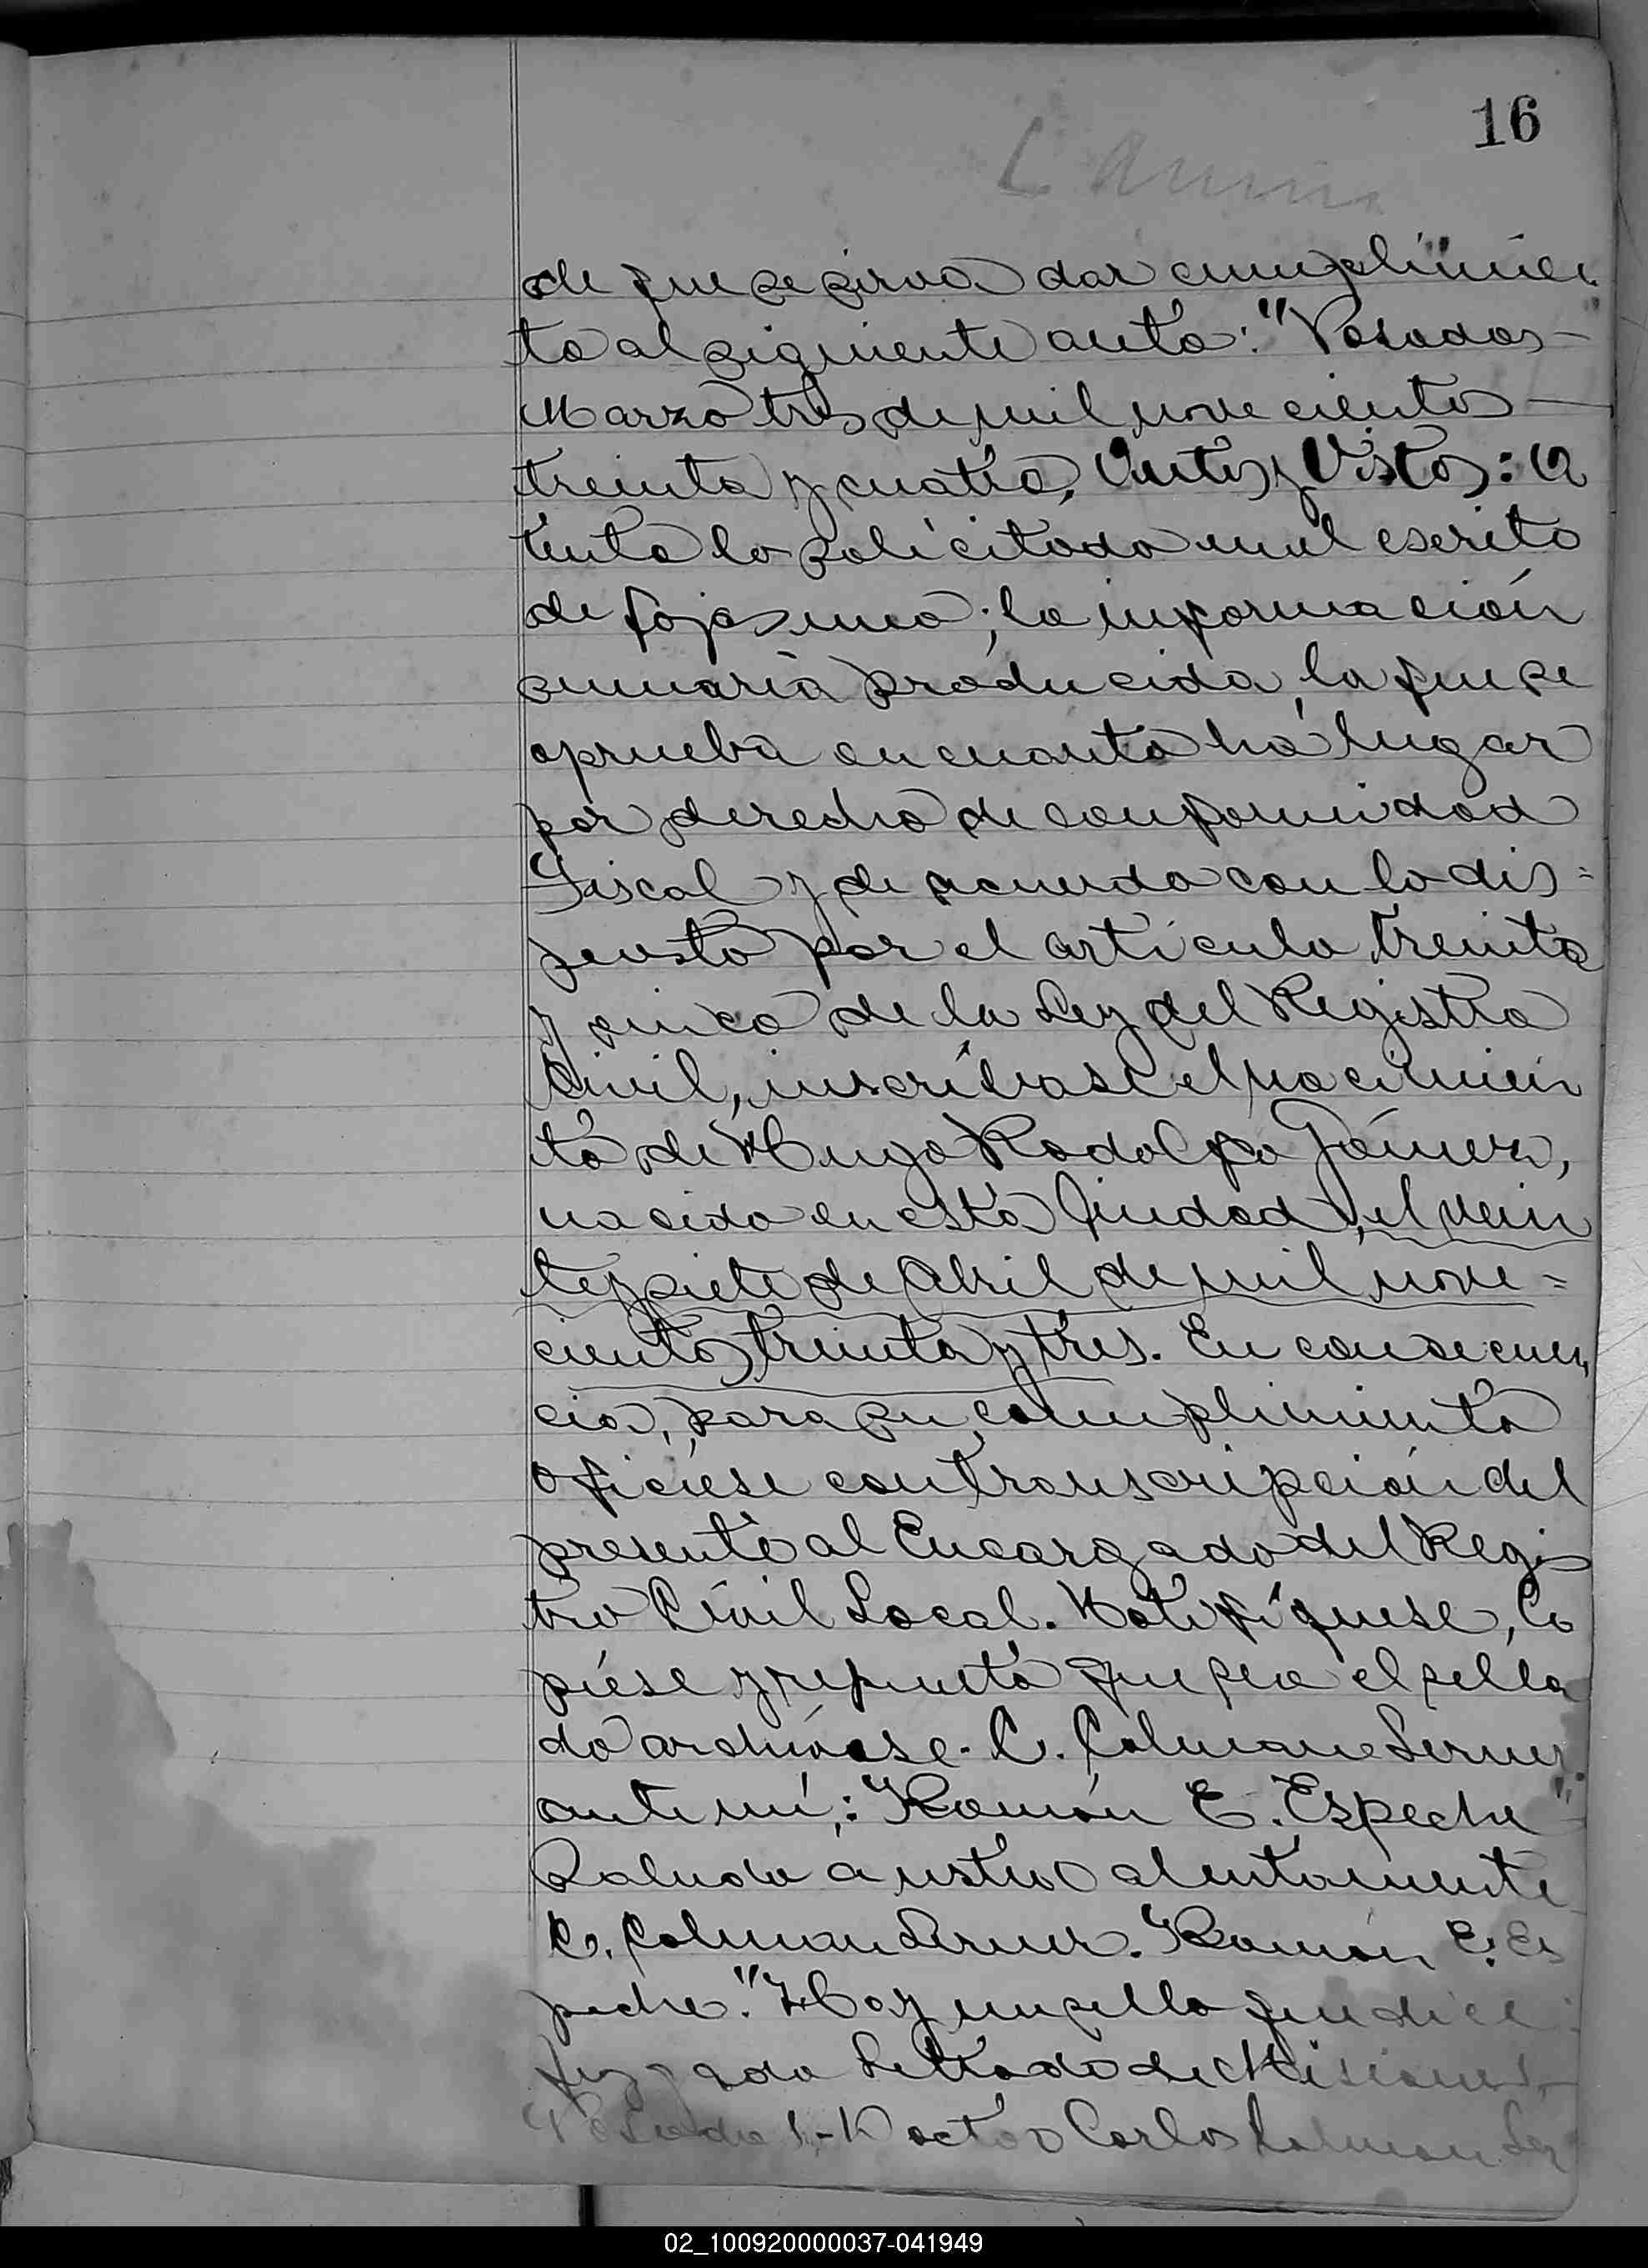 16
de que se sirva dar cumplimien
to al siguiente auto: "Posadas
Marzo tres de mil novecientos
treinta y cuatro, Autos y Vistos: A
tento lo solicitado en el escrito
de fojas uno; la información
sumaria producida, la que se
aprueba en cuanto há lugar
por derecho de conformidad
Fiscal y de acuerdo con lo dis=
puesto por el artículo treinta
y cinco de la Ley del Registro
Civil, inscríbase el nacimien
to de Hugo Rodolfo Gómez,
nacido en esta Ciudad, el vein
te y siete de Abril de mil nove=
cientos treinta y tres. En consecuen
cia, para su cumplimiento
ofíciese con transcripción del
presente al Encargado del Regis
tro Civil Local. Notifíquese, Co
piése y repuesto que sea el sella
do archívese. C. Colman Lerner
ante mí: Román E. Espeche"
Saludo a usted atentamente
C. Colman Lerner. Román E. Es
peche." Hay un sello que dice:
Juzgado Letrado de Misiones,
Posadas.- Doctor Carlos Colman Ler
02_100920000037-041949